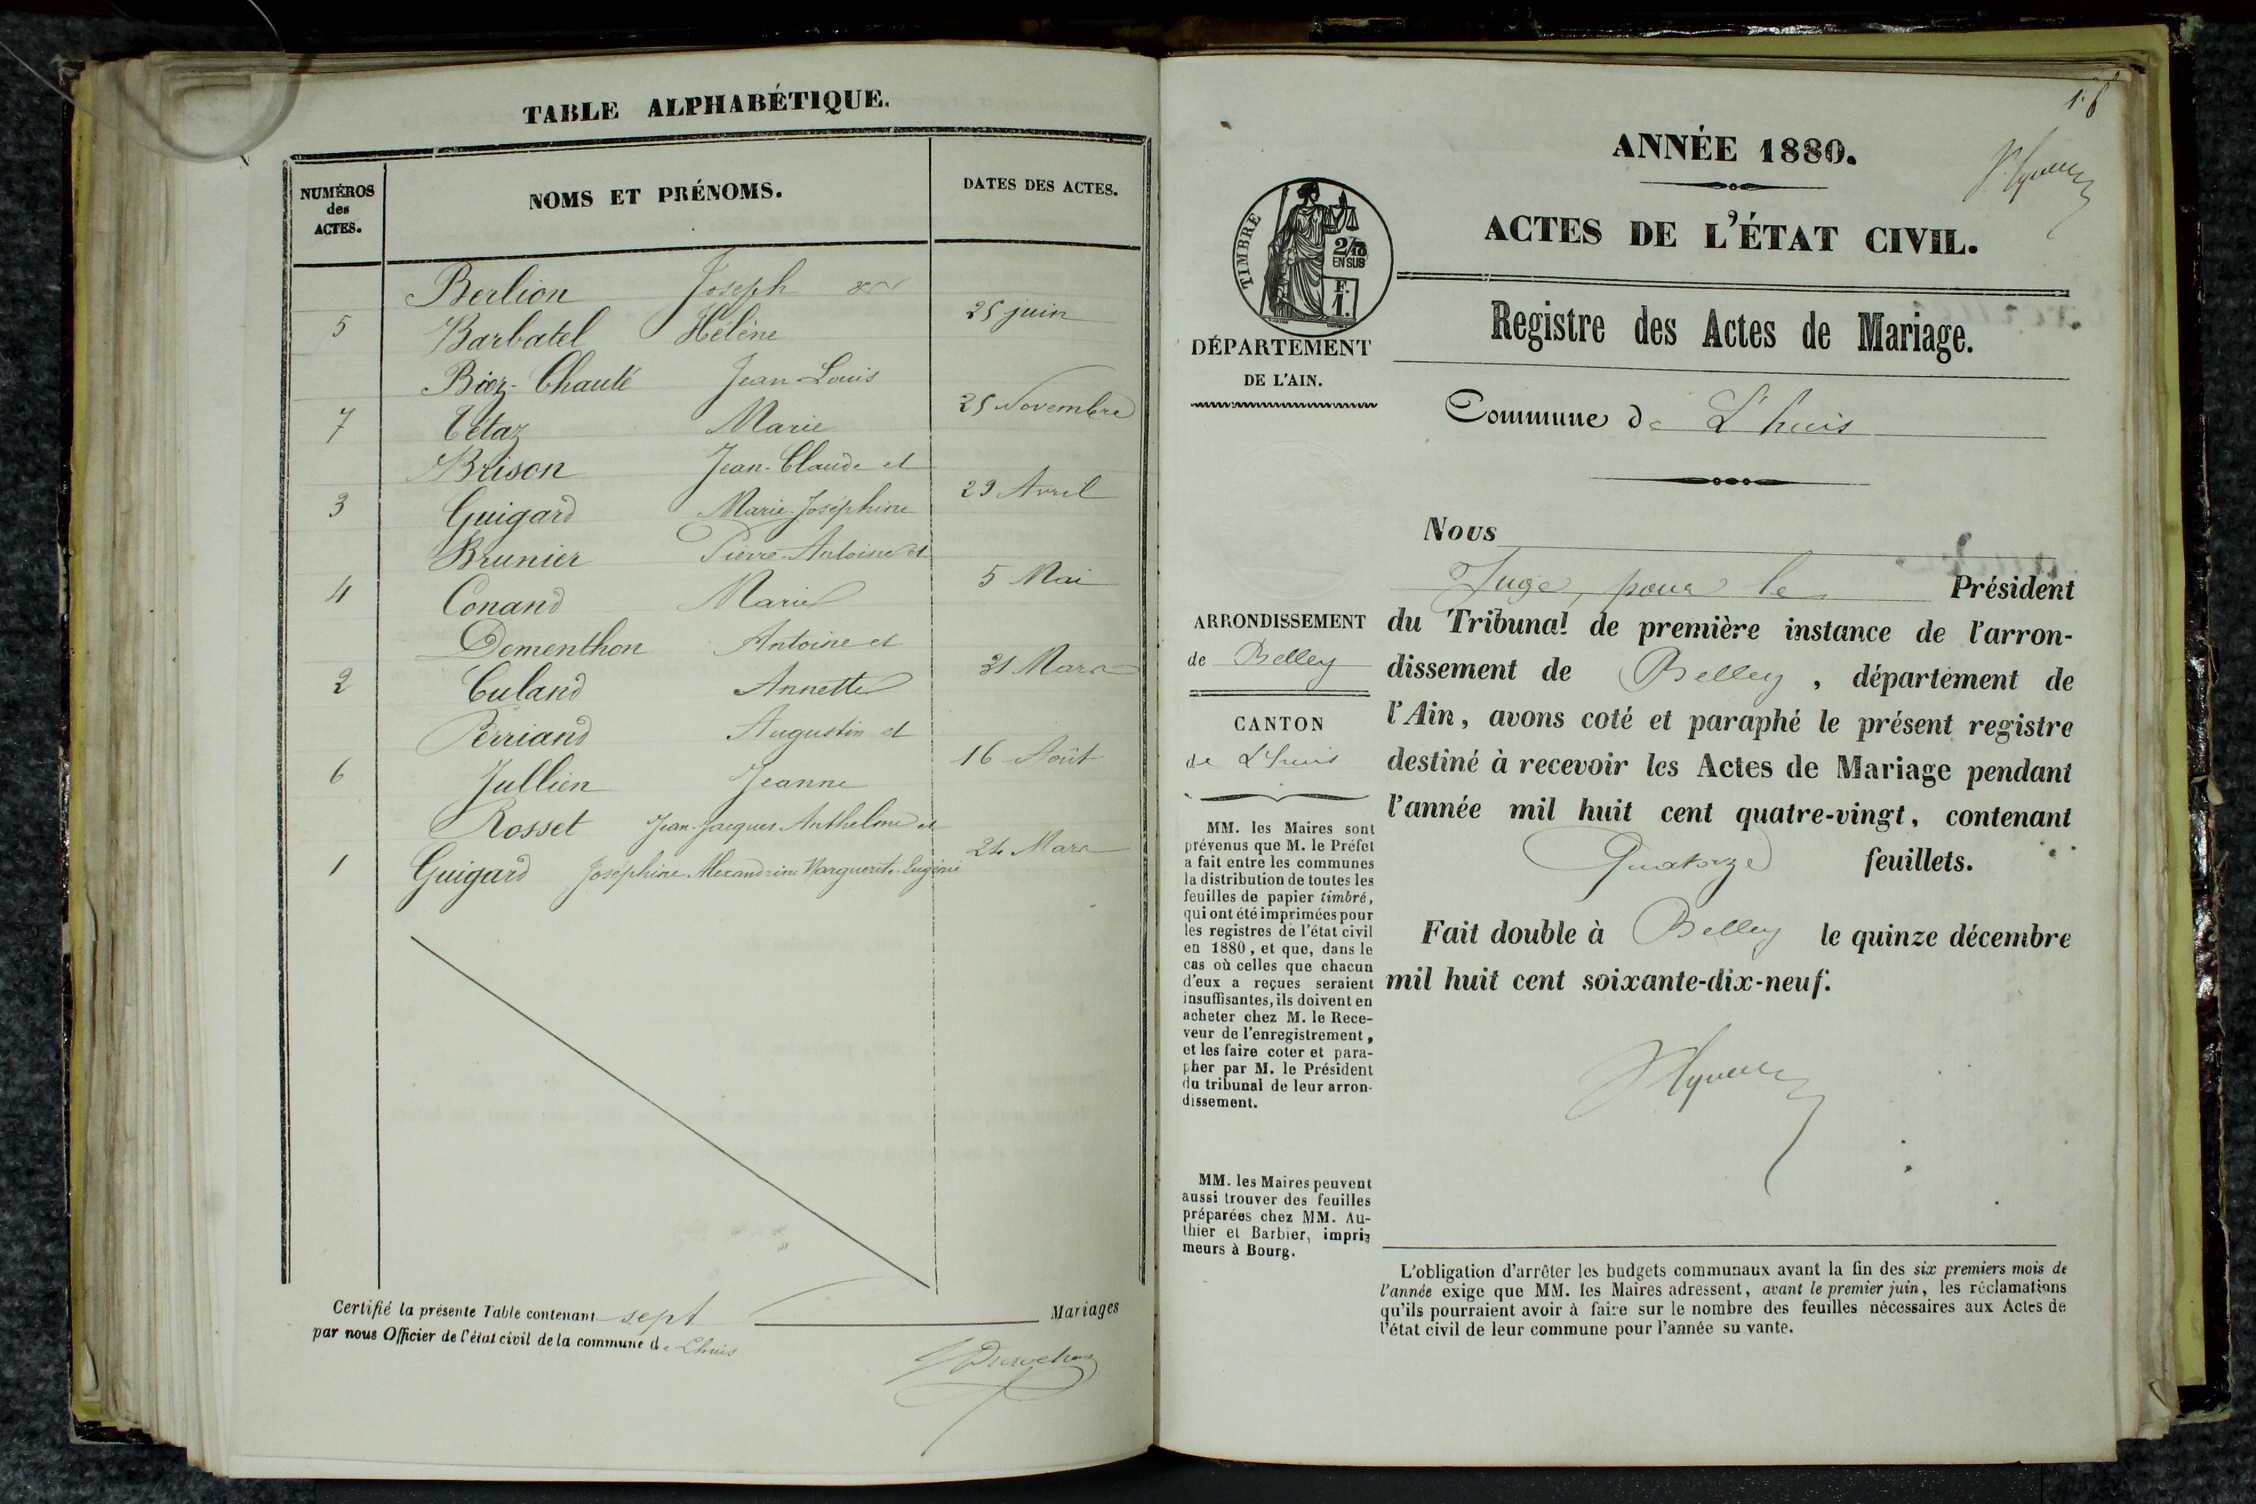 TABLE ALPHABÉTIQUE.
NUMÉROS
des
ACTES.
NOMS ET PRÉNOMS.
DATES DES ACTES.
Berlion Joseph
5 Barbatel Hélène 25 juin
Bioz-Chauté Jean-Louis
7 Tétaz Marie 25 Novembre
Brison Jean-Claude et
3 Guigard Marie-Joséphine 29 Avril
Brunier Pierre-Antoine et
4 Conand Marie 5 Mai
Dementhon Antoine et
2 Culand Annette 31 Mars
Perriand Augustin et
6 Jullien Jeanne 16 Août
Rosset Jean-Jacques Anthelme et
1 Guigard Joséphine Alexandrine Marguerite Eugénie 24 Mars
Certifié la présente Table contenant sept Mariages
par nous Officier de l'état civil de la commune de Lhuis
ANNÉE 1880.
ACTES DE L'ÉTAT CIVIL.
TIMBRE
2/10
EN SUS
F.
1.
DÉPARTEMENT
DE L'AIN.
Registre des Actes de Mariage.
Commune de L'huis
Nous
Juge, pour le Président
du Tribunal de première instance de l'arron-
dissement de Belley, département de
l'Ain, avons coté et paraphé le présent registre
destiné à recevoir les Actes de Mariage pendant
l'année mil huit cent quatre-vingt, contenant
Quatorze feuillets.
Fait double à Belley le quinze décembre
mil huit cent soixante-dix-neuf.
ARRONDISSEMENT
de Belley
CANTON
de L'huis
MM. les Maires sont
prévenus que M. le Préfet
a fait entre les communes
la distribution de toutes les
feuilles de papier timbré,
qui ont été imprimées pour
les registres de l'état civil
en 1880, et que, dans le
cas où celles que chacun
d'eux a reçues seraient
insuffisantes, ils doivent en
acheter chez M. le Rece-
veur de l'enregistrement,
et les faire coter et para-
pher par M. le Président
du tribunal de leur arron-
dissement.
MM. les Maires peuvent
aussi trouver des feuilles
préparées chez MM. Au-
thier et Barbier, impri-
meurs à Bourg.
L'obligation d'arrêter les budgets communaux avant la fin des six premiers mois de
l'année exige que MM. les Maires adressent, avant le premier juin, les réclamations
qu'ils pourraient avoir à faire sur le nombre des feuilles nécessaires aux Actes de
l'état civil de leur commune pour l'année su vante.